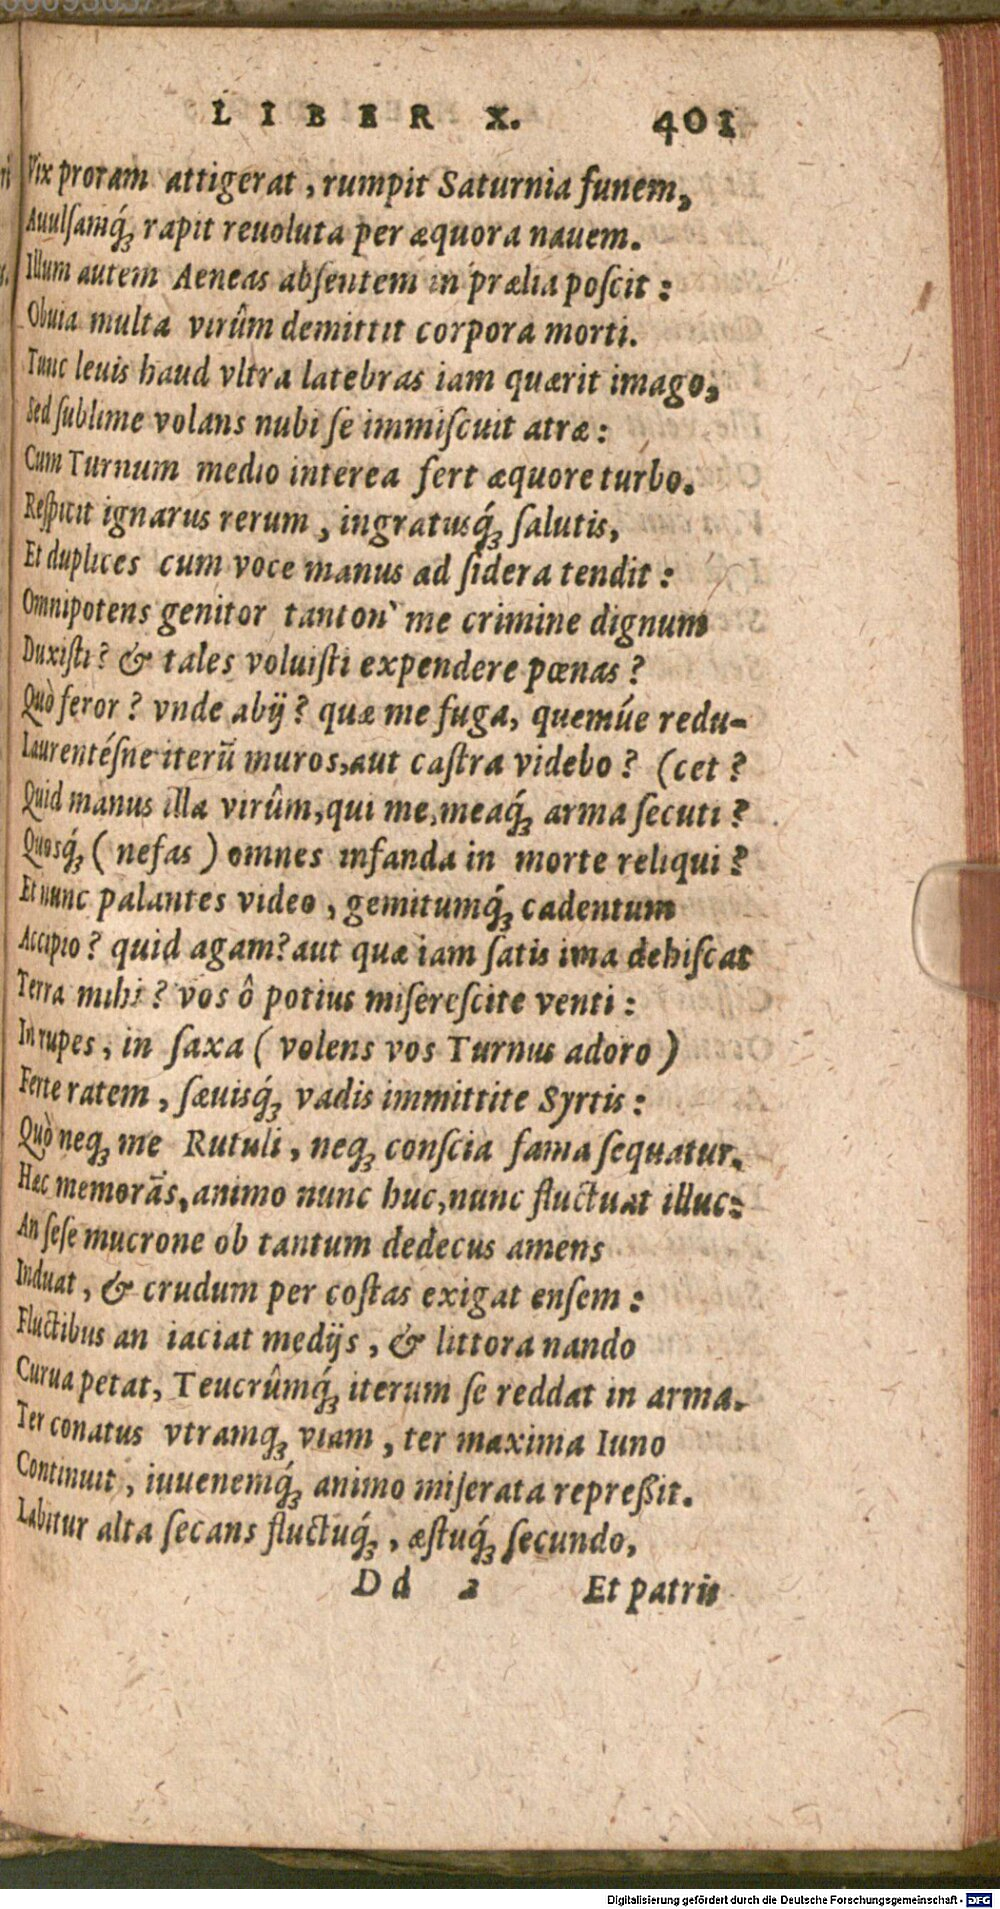 LIBER X. 401
Vix proram attigerat, rumpit Saturnia funem,
Auulſamq́ꝫ rapit reuoluta per æquora nauem.
Illum autem Aeneas abſentem in prælia poſcit:
Obuia multa virûm demittit corpora morti.
Tunc leuis haud vltra latebras iam quærit imago,
Sed ſublime volans nubi ſe immiſcuit atræ:
Cum Turnum medio interea fert æquore turbo.
Reſpicit ignarus rerum, ingratusq́ꝫ ſalutis,
Et duplices cum voce manus ad ſidera tendit:
Omnipotens genitor tanton` me crimine dignum
Duxiſti? & tales voluiſti expendere pœnas?
Quò feror? vnde abij? quæ me fuga, quemúe redu-
Laurentéſne iterũ muros, aut caſtra videbo? (cet?
Quid manus illa virûm, qui me, meaq́ꝫ arma ſecuti?
Quosq́ꝫ (nefas) omnes infanda in morte reliqui?
Et nunc palantes video, gemitumq́ꝫ cadentum
Accipio? quid agam? aut quæ iam ſatis ima dehiſcat
Terra mihi? vos ô potius miſereſcite venti:
In rupes, in ſaxa (volens vos Turnus adoro)
Ferte ratem, ſæuisq́ꝫ vadis immittite Syrtis:
Quò neqꝫ me Rutuli, neqꝫ conſcia fama ſequatur.
Hæc memorãs, animo nunc huc, nunc fluctuat illuc:
An ſeſe mucrone ob tantum dedecus amens
Induat, & crudum per coſtas exigat enſem:
Fluctibus an iaciat medijs, & littora nando
Curua petat, Teucrûmq́ꝫ iterum ſe reddat in arma.
Ter conatus vtramqꝫ viam, ter maxima Iuno
Continuit, iuuenemq́ꝫ animo miſerata repreßit.
Labitur alta ſecans fluctuq́ꝫ, æſtuq́ꝫ ſecundo,
D d 2 Et patris
Digitalisierung gefördert durch die Deutsche Forschungsgemeinschaft - DFG